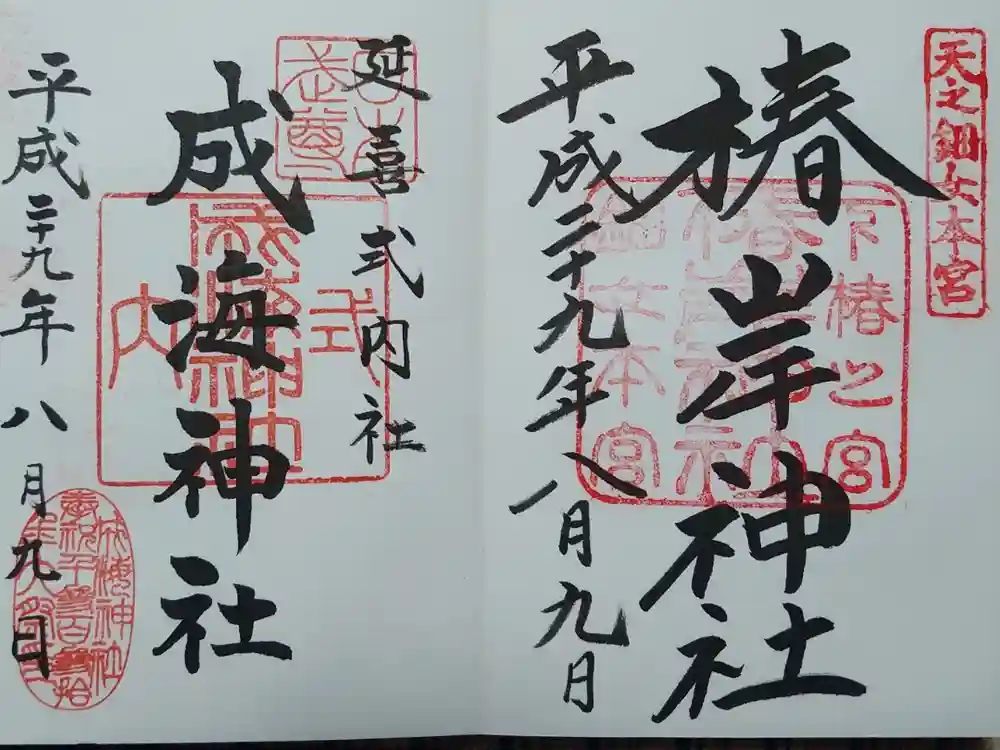 天之鈿女本宮
椿岸神社
下椿之宮
平成二十九年八月九日
延喜式内社
成海神社
式
内
平成二十九年八月九日
成海神社